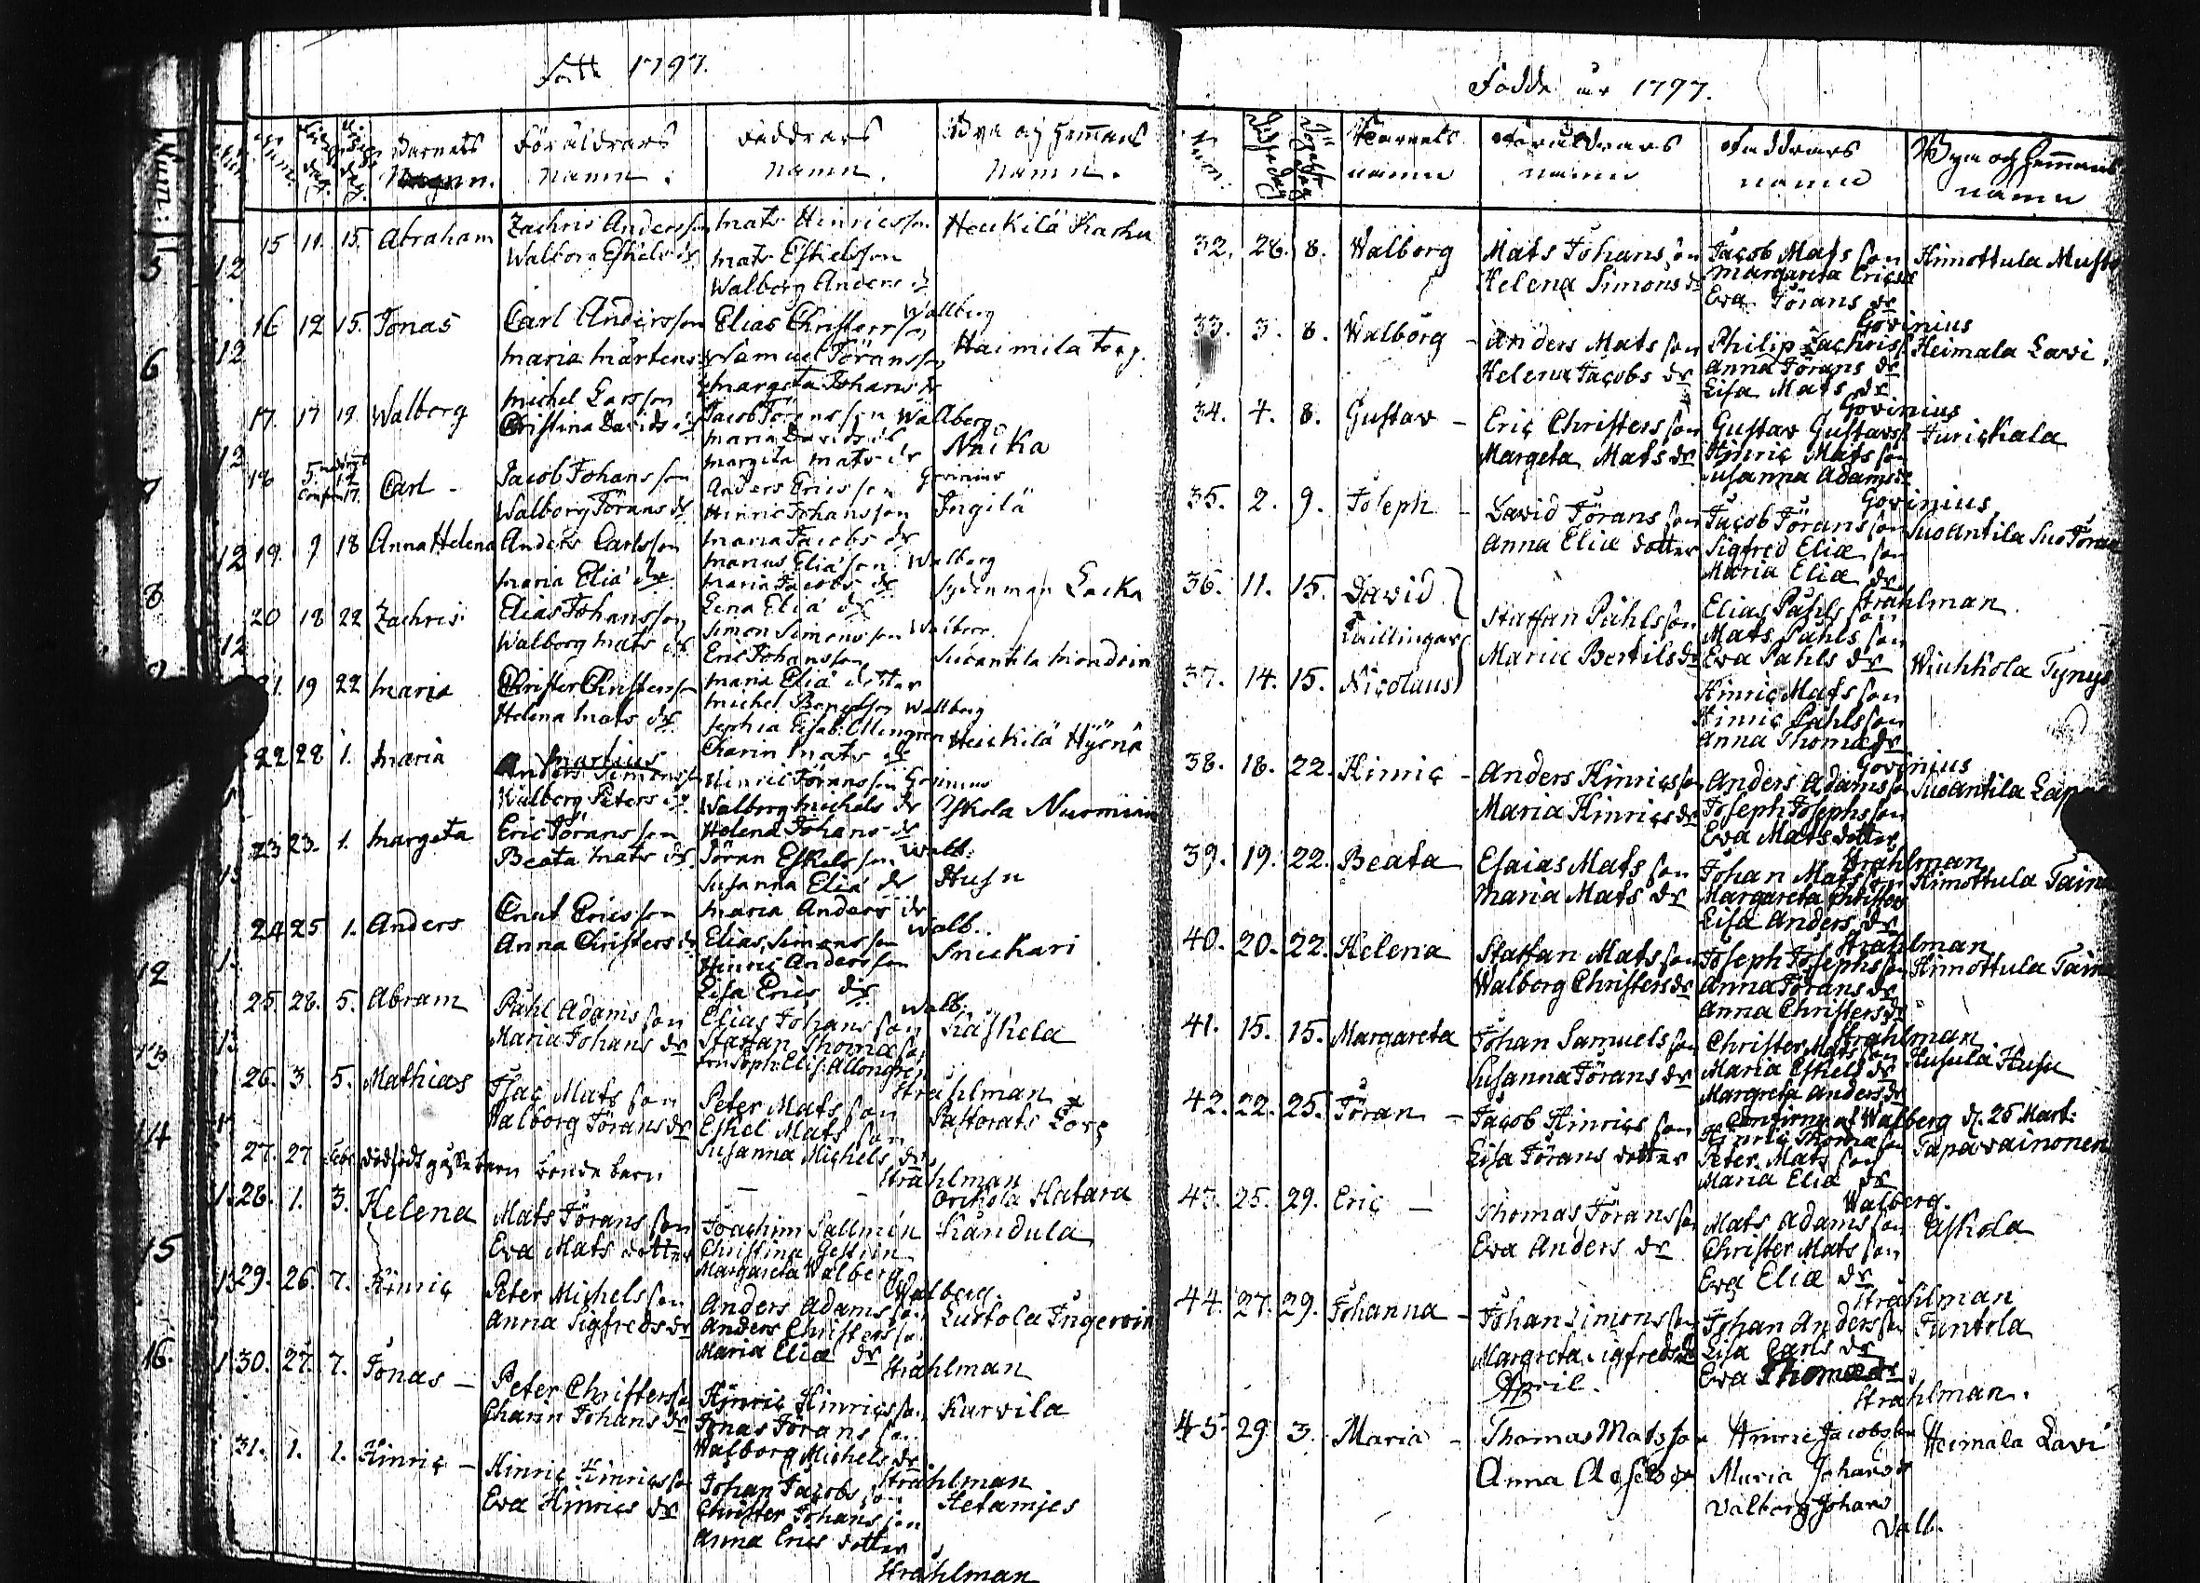 1797.
Barnets namn.
Föräldrars namn.
Faddrars namn.
Bya och Hemans namn.
15 11. 15. Abraham
Zachris Andersson
Walbora Eskels dr
Mats Hinricsson
Mats Eskelsson
Walborg Anders dr
Heickilä Karhu
Walberg
16 12 15. Jonas
Carl Andersson
Maria Mårtens dr
Elias Christersson
Samuel Jöransson
Margeta Johans dr
Haimila Torp.
17. 17 19. Walborg
Michel Larsson
Christina Davids dr
Jacob Jöransson
Maria Davids dr
Margeta Mats dr
Walberg
Näcka
18 Carl -
Jacob Johansson
Walborg Jörans dr
Anders Ericsson
Hinric Johansson
Maria Jacobs dr
Govinius
Ingilä
19. 9 18 Anna Helena
Anders Carlsson
Maria Eliæ dr
Marcus Eliæson
Maria Jacobs dr
Lena Eliæ dr
Walberg
20 18 22 Zachris
Elias Johansson
Walborg Mats dr
Simon Simonsson
Eric Johansson
Maria Eliæ dotter
21. 19 22 Maria
Christer Christersson
Helena Mats dr
Walberg
Charin Mats dr
Heickilä Hyenä
Martius
22 28 1. Maria
Anders Simonsson
Walborg Peters dr
Hinric Jöransson
Walborg Michels dr
Helena Johans dr
Govinius
23 23. 1. Margeta
Eric Jöransson
Beata Mats dr
Jöran Eskelsson
Susanna Eliæ dr
Maria Anders dr
Walb.
Husu
24 25 1. Anders
Cnut Ericsson
Anna Christers dr
Elias Simonsson
Hinric Andersson
Lisa Erics dr
Walb.
Snickari
25 28. 5. Abram
Påhl Adamsson
Maria Johans dr
Elias Johansson
Staffan Thomæson
Walb.
Kåskela
26. 3. 5. Mathias
Isac Matsson
Walborg Jörans dr
Peter Matsson
Eskel Matsson
Susanna Michels dr
Strahlman
Pastorats Torp
27. 27 Febr. dödfödt gåssebarn bonde barn
Strahlman
28. 1. 3. Helena
Mats Jöransson
Eva Mats dotter
Joachim Sallmén
Margareta Walberg
Kandula
Walberg.
29. 26. 7. Hinric
Peter Michelsson
Anna Sigfreds dr
Anders Adamsson
Anders Christersson
Maria Eliæ dr
Strahlman
30. 27. 7. Jonas -
Peter Christersson
Charin Johans dr
Hinric Hinricsson
Jonas Jöransson
Walborg Michels dr
Kurvila
Strahlman
31. 1. 1. Hinric -
Hinric Hinricsson
Eva Hinrics dr
Johan Jacobsson
Christer Johansson
Anna Erics dotter
Strahlman
Födde år 1797.
Num:
Barnets namn
Föräldrars namn
Faddrars namn
Bya och Hemmans namn
32. 28. 8. Walborg
Mats Johansson
Helena Simons dr
Jacob Matsson
Margareta Erics dr
Eva Jörans dr
Himottula
Govinius
33. 3. 8. Walborg -
Anders Matsson
Helena Jacobs dr
Philip Zachriss
Anna Jörans dr
Lisa Mats dr
Heimala Lavi
Govinius
34. 7. 8. Gustav -
Eric Christersson
Margeta Mats dr
Gustav Gustavss
Hinric Matsson
Susanna Adams dr
Jurickala
Govinius
35. 2. 9. Joseph -
David Jöransson
Anna Eliæ dotter
Jacob Jöransson
Sigfred Eliæson
Maria Eliæ dr
Suoantila
Strahlman
36. 11. 15. David
Tvillingar
37. 14. 15. Nicolaus
Staffan Påhlsson
Maria Bertils dr
Elias Påhlsson
Mats Påhlsson
Eva Påhls dr
Hinric Matsson
Hinric Påhlsson
Anna Thomæ dr
Govinius
38. 18. 22. Hinric -
Anders Hinricsson
Maria Hinrics dr
Anders Adamsson
Joseph Josephsson
Eva Mats dotter
Suoantila
Strahlman
39. 19. 22. Beata
Esaias Matsson
Maria Mats dr
Johan Matsson
Margareta Christers
Lisa Anders dr
Himottula
Strahlman
40. 20. 22. Helena
Staffan Matsson
Walborg Christers dr
Joseph Josephsson
Anna Jörans dr
Anna Christers dr
Himottula
Strahlman
41. 15. 15. Margareta
Johan Samuelsson
Susanna Jörans dr
Christer Matsson
Maria Eskels dr
Margreta Anders dr
Husula Husu
Confirm: af Walberg d. 25 Mart:
42. 22. 25. Jöran -
Jacob Hinricsson
Lisa Jörans dotter
Hinric Thomæson
Peter Matsson
Maria Eliæ dr
Walberg.
43. 25. 29. Eric -
Thomas Jöransson
Eva Anders dr
Mats Adamsson
Christer Matsson
Eva Eliæ dr
Uskola
Strahlman
44. 27. 29. Johanna -
Johan Simonsson
Margreta Sigfreds dr
Johan Andersson
Lisa Carls dr
Eva Thomæ dr
Juntola
Strahlman.
April.
45. 29 3. Maria -
Thomas Matsson
Hinric Jacobsson
Maria Johans dr
Valborg Johans
Heimala Lavi
Valb.